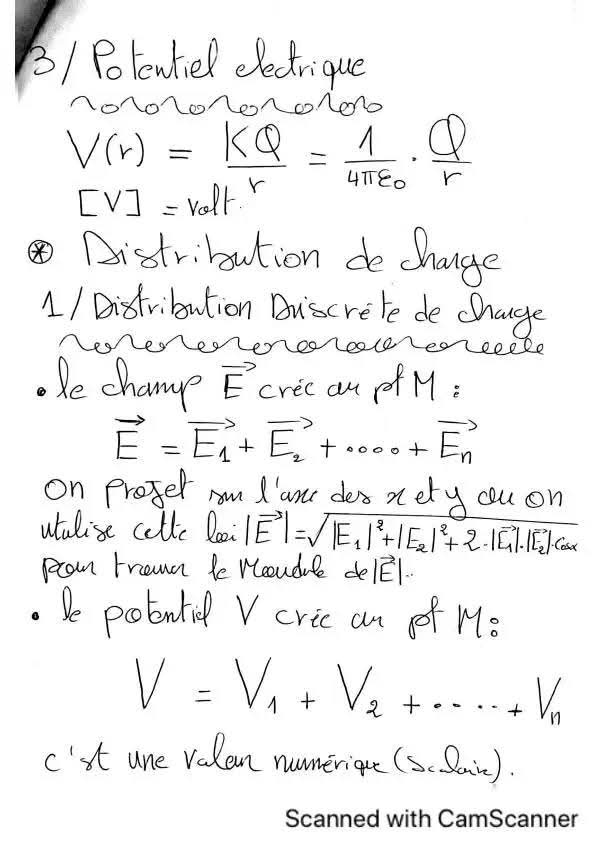 3/ Potentiel electrique
V(r) = KQ/r = 1/4πε₀ · Q/r
[V] = volt.
⊛ Distribution de charge
1/ Distribution Discréte de charge
• le champ E⃗ crée au pt M :
E⃗ = E⃗₁ + E⃗₂ + ..... + E⃗n
On projet sur l'axe des x et y ou on
utulise cette loi |E⃗| = √|E₁|² + |E₂|² + 2·|E⃗₁|·|E⃗₂|·Cosα
pour trouver le Moudule de |E⃗|.
• le potentiel V crée au pt M :
V = V₁ + V₂ + ..... + Vn
c'st une valeur numérique (Scalaire).
Scanned with CamScanner